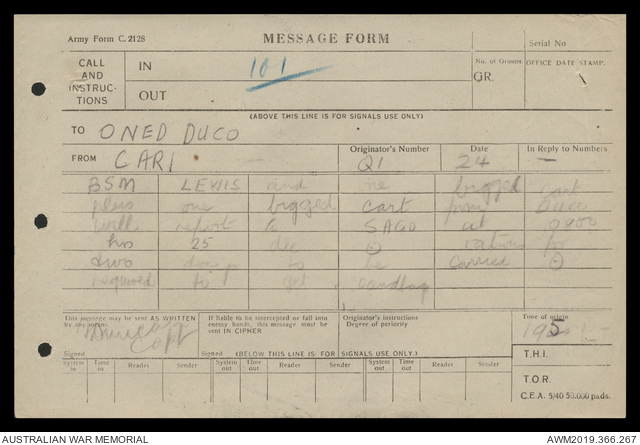 Army Form C. 2128
MESSAGE FORM
Serial No
CALL AND INSTRUCTIONS
IN
101
No. of Groups
GR.
OFFICE DATE STAMP.
OUT
(ABOVE THIS LINE IS FOR SIGNALS USE ONLY)
TO ONED DUCO
FROM CARI
Originator's Number Q1
Date 24
In Reply to Number —
BSM LEWIS and one brigged cart
plus one brigged cart from DUCO
will report to SAGO at 0900
hrs 25 dec ⊙ rations for
two days to be carried ⊙
required to get
This message may be sent AS WRITTEN by any means.
If liable to be intercepted or fall into enemy hands, this message must be sent IN CIPHER
Originator's instructions
Degree of periority
Time of origin
Capt
Signed
Signed
(BELOW THIS LINE IS FOR SIGNALS USE ONLY.)
T.H.I.
System in
Time in
Reader
Sender
System out
Time out
Reader
Sender
System out
Time out
Reader
Sender
T.O.R.
C.E.A. 5/40 50,000 pads.
AUSTRALIAN WAR MEMORIAL
AWM2019.366.267